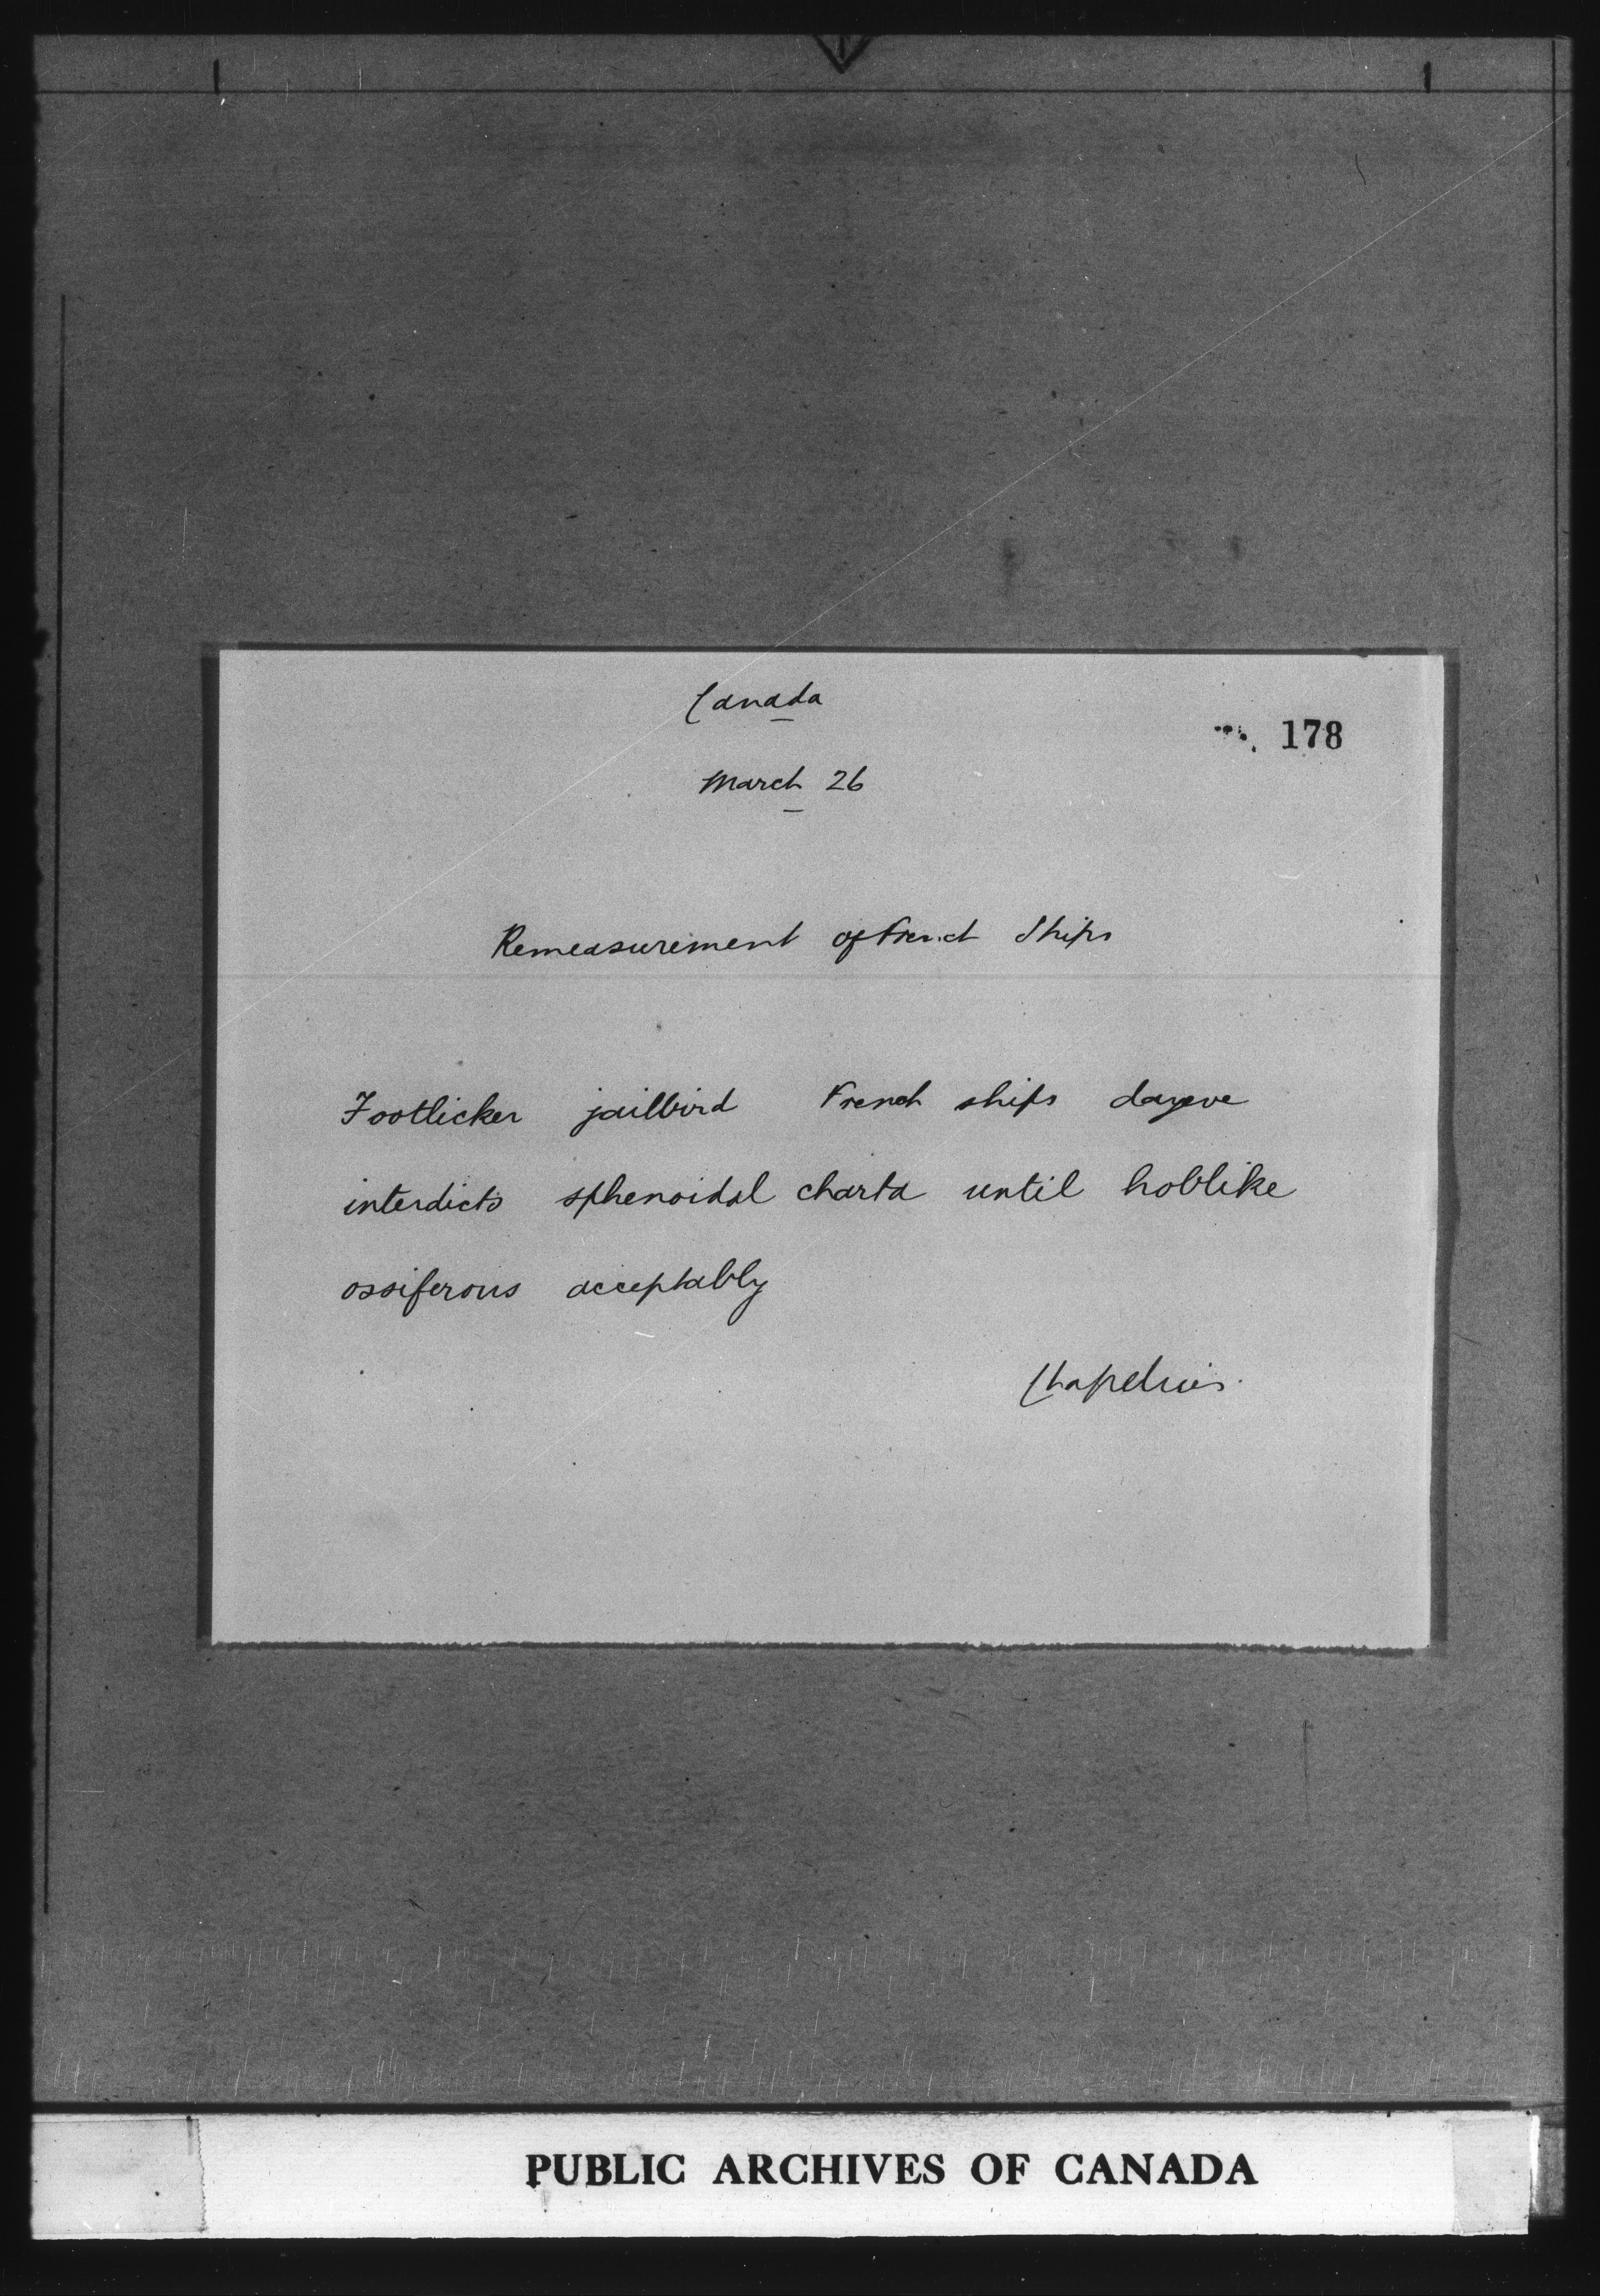 Canada
178
March 26
Remeasurement of French Ships
Footlicker jailbird French ships dayeve
interdicts sphenoidal charta until hoblike
ossiferous acceptably
PUBLIC ARCHIVES OF CANADA